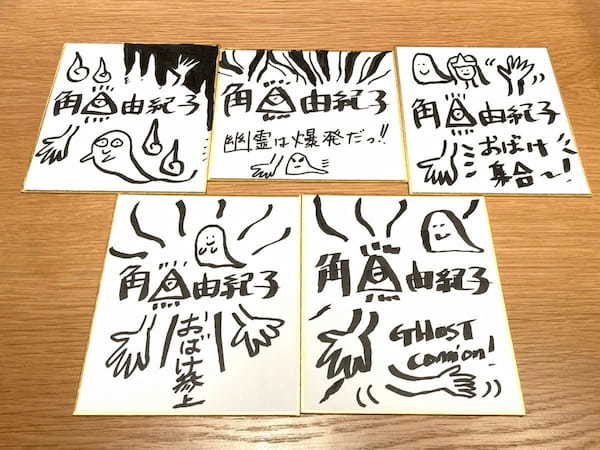 角由紀子
角由紀子
幽霊は爆発だっ!!
角由紀子
おばけ
集合〜!
角由紀子
おばけ参上
角由紀子
GHOST